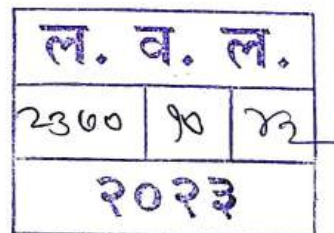 ल. व. ल.
२३७० १० ४२
२०२३